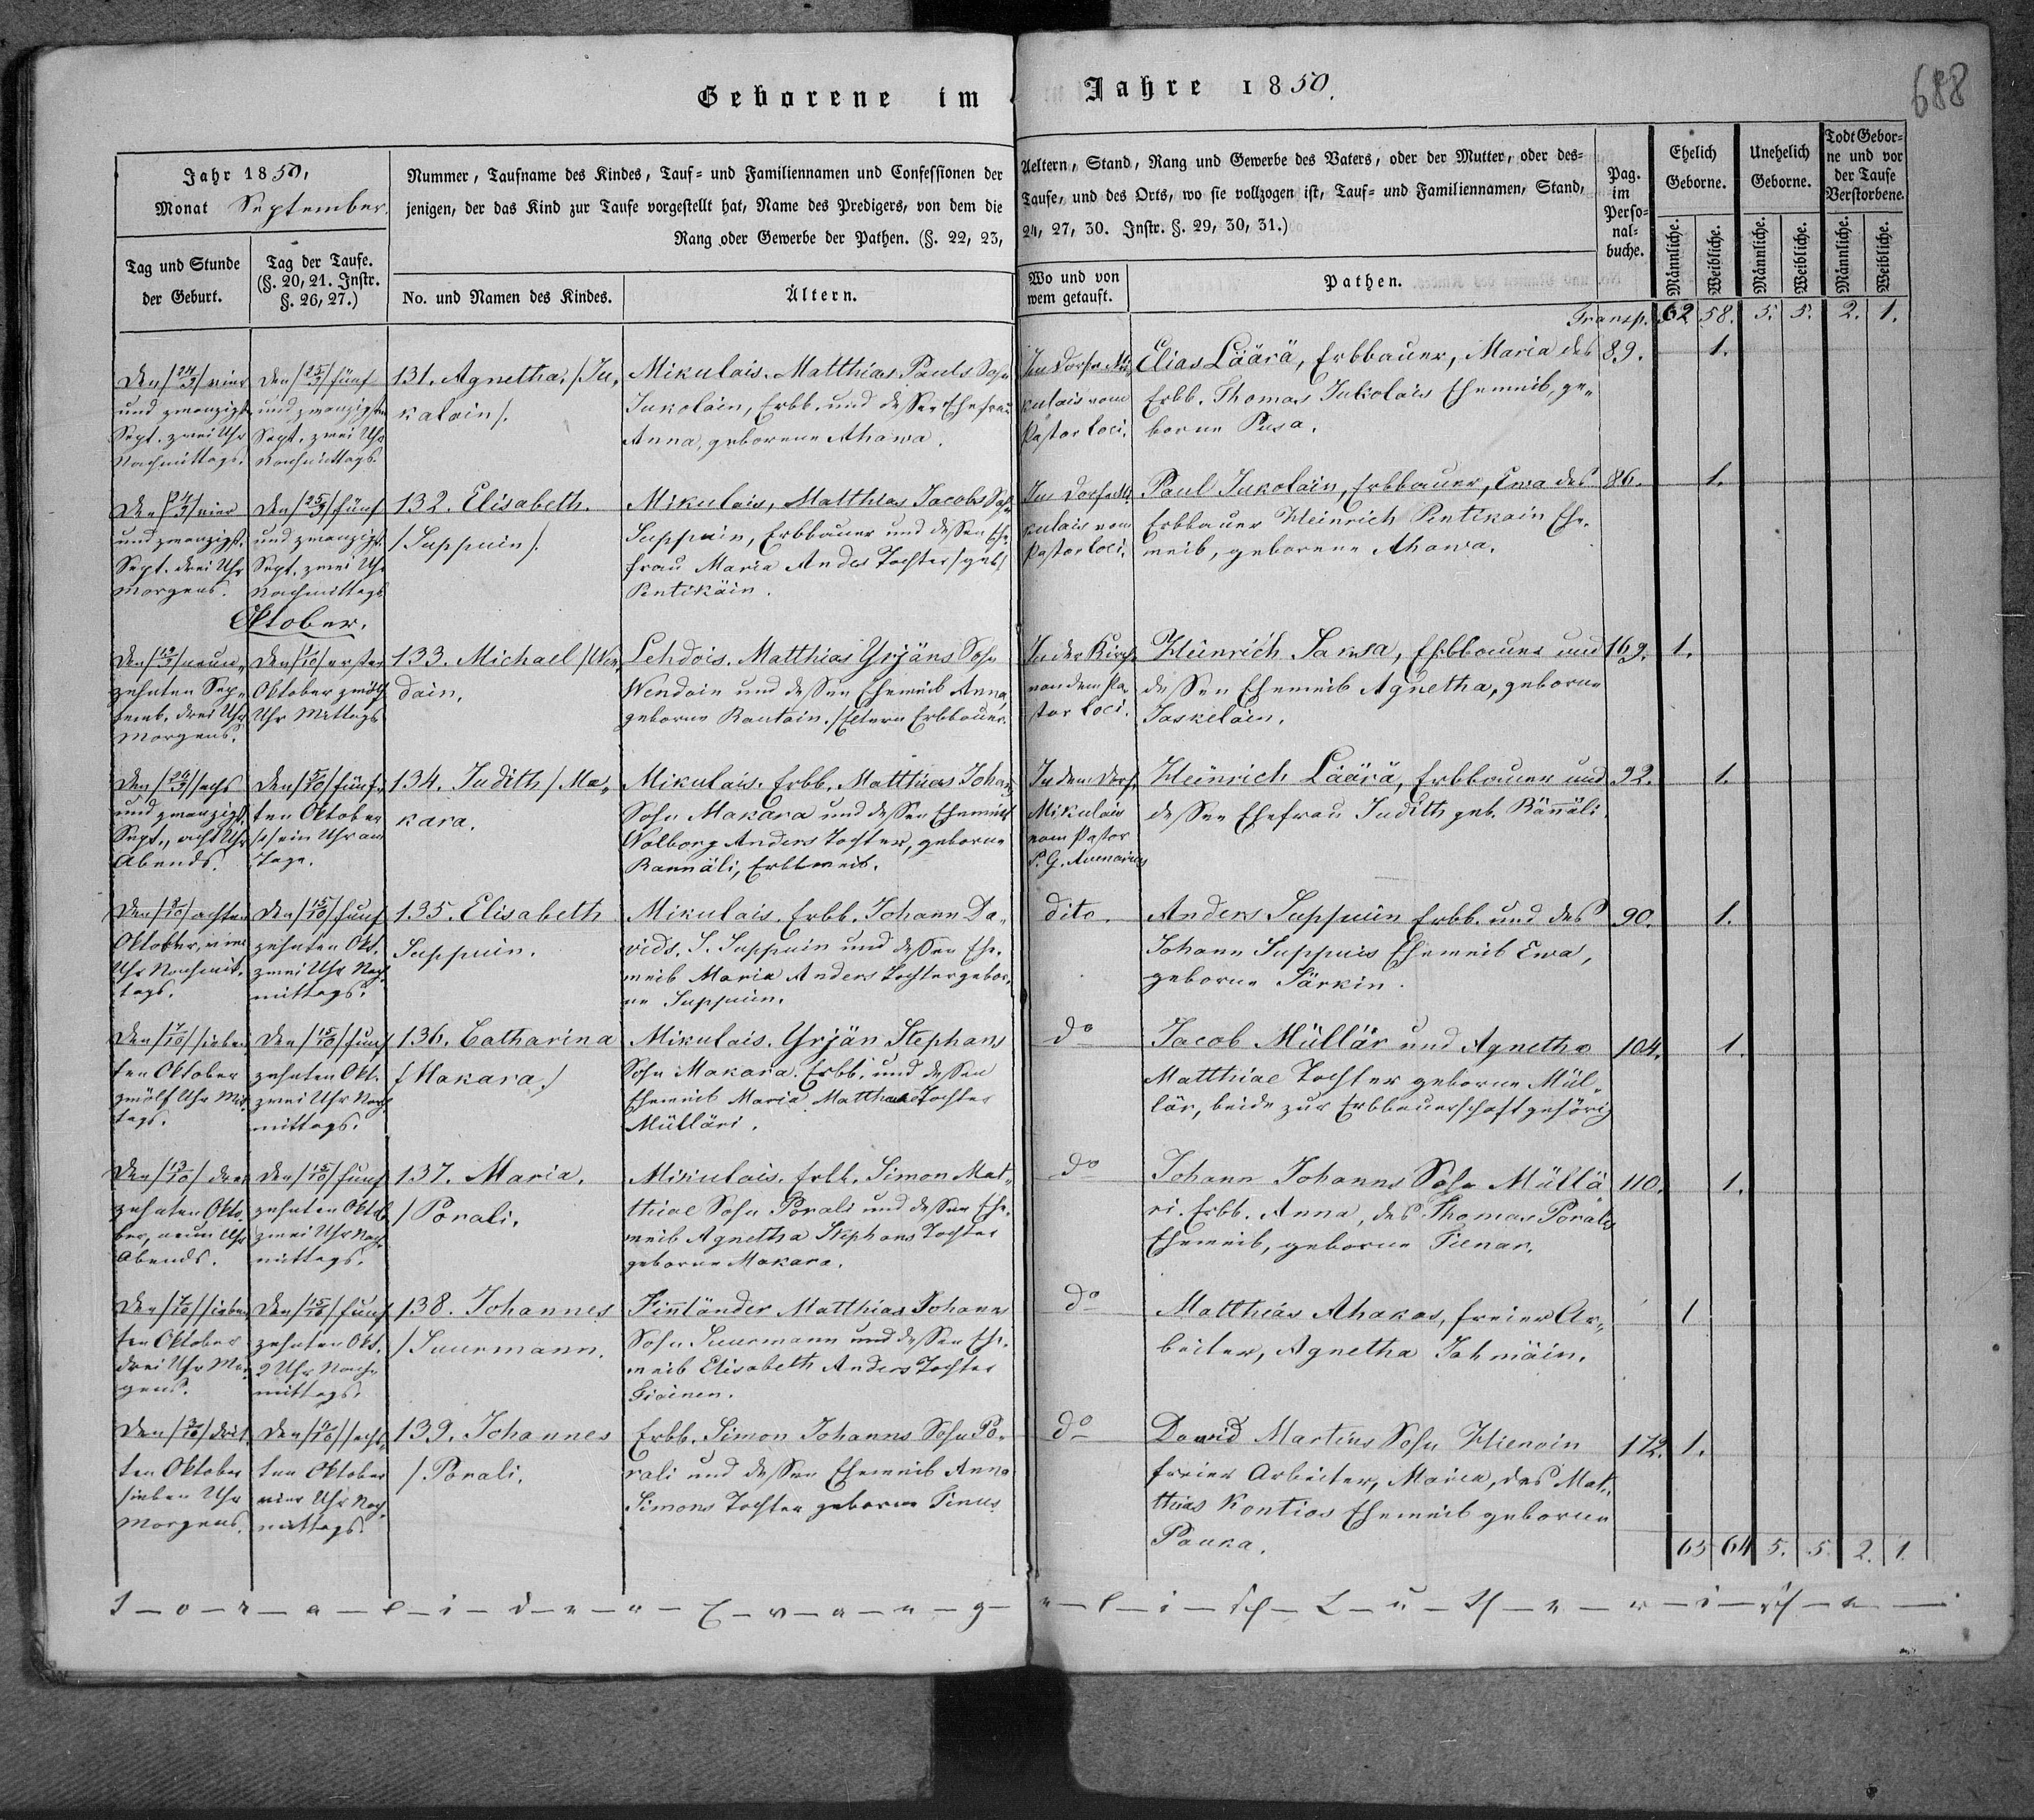 Geborene im Jahre 1850.
688
Jahr 1850,
Monat September.
Nummer, Taufname des Kindes, Tauf- und Familiennamen und Confessionen der Aeltern, Stand, Rang und Gewerbe des Vaters, oder der Mutter, oder des-
jenigen, der das Kind zur Taufe vorgestellt hat, Name des Predigers, von dem die Taufe, und des Orts, wo sie vollzogen ist, Tauf- und Familiennamen, Stand,
Rang oder Gewerbe der Pathen. (§. 22, 23, 24, 27, 30. Instr. §. 29, 30, 31.)
Pag.
im
Perso-
nal-
buche.
Ehelich
Geborne.
Unehelich
Geborne.
Todt Gebor-
ne und vor
der Taufe
Verstorbene.
Tag und Stunde
der Geburt.
Tag der Taufe.
(§. 20, 21. Instr.
§. 26, 27.)
No. und Namen des Kindes.
Ältern.
Wo und von
wem getauft.
Pathen.
Männliche.
Weibliche.
Männliche.
Weibliche.
Männliche.
Weibliche.
Transp. 62 58. 5. 5. 2. 1.
Den /24/9/ vier
und zwanzigst
Sept. zwei Uhr
Nachmittags.
Den /25/9/ fünf
und zwanzigsten
Sept. zwei Uhr
Nachmittags.
131. Agnetha. /Ju-
kalain/.
Mikulais. Matthias Pauls Sohn
Jukolain, Erbb. und dessen Ehefrau
Anna, geborene Ahawa.
Im Dorfe Mi-
kulais vom
Pastor loci.
Elias Läärä, Erbbauer, Maria des
Erbb. Thomas Jukolais Eheweib, ge-
borne Pusa.
89. 1.
Den /24/9/ vier
und zwanzigst.
Sept. drei Uhr
Morgens.
Den /25/9/ fünf
und zwanzigst.
Sept. zwei Uhr
Nachmittags
132. Elisabeth.
/Suppuin/.
Mikulais, Matthias Jacobs Sohn
Suppuin, Erbbauer und dessen Ehe-
frau Maria Anders Tochter /geb/
Pentikäin.
Im Dorfe Mi-
kulais vom
Pastor loci.
Paul Jukolain, Erbbauer, Ewa des
Erbbauer Heinrich Pentikain Ehe-
weib, geborene Ahawa.
86. 1.
Oktober.
Den /19/9/ neun-
zehnten Sep-
temb. drei Uhr
Morgens.
Den /1/10/ ersten
Oktober zwölf
Uhr Mittags
133. Michael /Wen-
dain.
Lehdois. Matthias Yrjäns Sohn
Wendain und dessen Eheweib Anna,
geborne Rautain. /Eltern Erbbauer.
In der Kirche
von dem Pa-
stor loci.
Heinrich Saksa, Erbbauer und
dessen Eheweib Agnetha, geborne
Jaskeläin.
169. 1.
Den /26/9/ sechs
und zwanzigst.
Sept., acht Uhr
Abends.
Den /5/10/ fünf-
ten Oktober
ein Uhr am
Tage.
134. Judith /Ma-
kara.
Mikulais. Erbb. Matthias Johans
Sohn Makara und dessen Eheweib
Walborg Anders Tochter, geborne
Rannäli, Erbbweib.
In dem Dorf.
Mikulais
vom Pastor
P. G. Avenarius
Heinrich Läärä, Erbbauer und
dessen Ehefrau Judith geb. Rännäli.
92. 1.
Den /8/10/ achten
Oktober, vier
Uhr Nachmit-
tags.
Den /15/10/ fünf
zehnten Okt.
zwei Uhr Nach
mittags.
135. Elisabeth
Suppuin.
Mikulais. Erbb. Johann Da-
vids. S. Suppuin und dessen Ehe-
weib Maria Anders Tochter gebor-
ne Suppuin.
dito.
Anders Suppuin Erbb. und des
Johann Suppuis Eheweib Ewa,
geborne Särkin.
90. 1.
Den /7/10/ sieben
ten Oktober
zwölf Uhr Mit-
tags.
Den /15/10/ fünf
zehnten Okt.
zwei Uhr Nach
mittags.
136. Catharina
/Makara./
Mikulais. Yrjän Stephans
Sohn Makara. Erbb. und dessen
Eheweib Maria Matthiae Tochter
Mülläri.
do
Jacob Müllär und Agnetha
Matthiae Tochter geborne Mül-
lär, beide zur Erbbauerschaft gehörig
104. 1.
Den /13/10/ drei
zehnten Okto-
ber, neun Uhr
Abends.
Den /15/10/ fünf
zehnten Oktob
zwei Uhr Nach
mittags.
137. Maria.
/Porali.
Mikulais. Erbb. Simon Mat-
thiae Sohn Porali und dessen Ehe-
weib Agnetha Stephans Tochter
geborne Makara.
do
Johann Johanns Sohn Müllä
ri. Erbb. Anna, des Thomas Poralis
Eheweib, geborne Tienar.
110. 1.
Den /7/10/ sieben
ten Oktober
drei Uhr Mor-
gens.
Den /15/10/ fünf
zehnten Okt.
2 Uhr Nach-
mittags.
138. Johannes
/Suurmann.
Finnländer Matthias Johanns
Sohn Suurmann und dessen Ehe-
weib Elisabeth Anders Tochter
do
Matthias Ahakas, freier Ar-
beiter, Agnetha Tahmäin.
1
Den /3/10/ drit-
ten Oktober
sieben Uhr
Morgens.
Den /6/10/ sechs-
ten Oktober
vier Uhr Nach
mittags.
139. Johannes
/Porali.
Erbb. Simon Johanns Sohn Po-
rali und dessen Eheweib Anna
Simons Tochter geborne Pinus
do
David Martins Sohn Hienoin
freier Arbeiter, Maria, des Mat-
thias Kontias Eheweib geborne
Pauka.
172. 1.
65 64 5. 5. 2. 1.
S-o-r-a-l-i-d-e-n-E-v-a-n-g-e-l-i-sch-L-u-th-e-r-i-sch-e